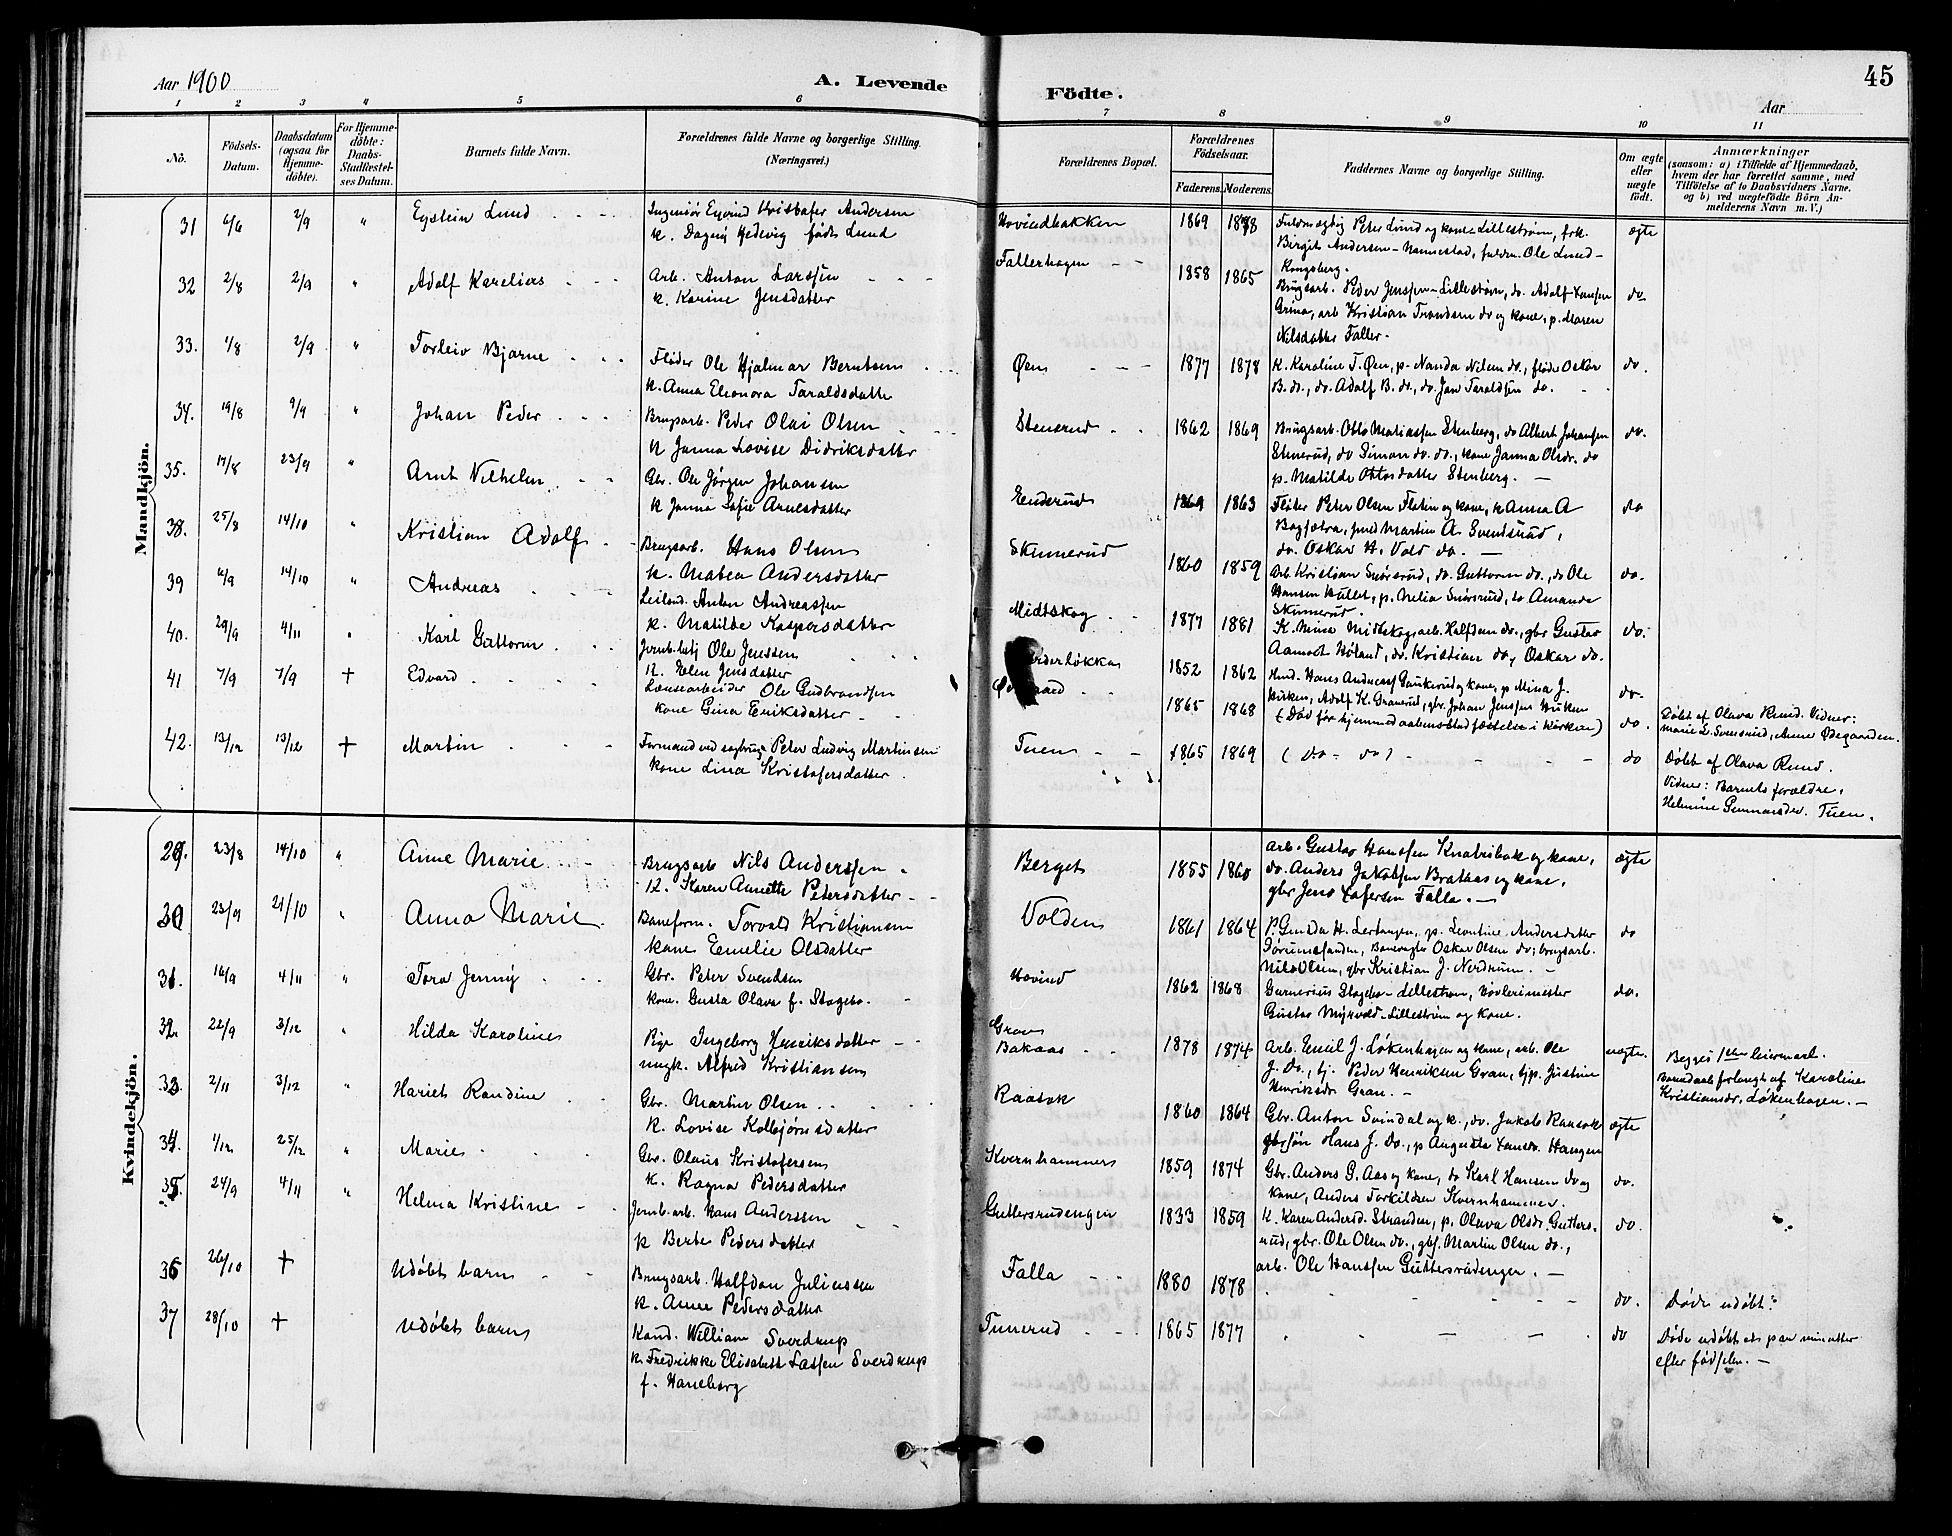 Aar 1900
A. Levende
Födte.
45
Aar
1 2 3 4 5 6 7 8 9 10 11
No.
Födsels-
Datum.
Daabsdatum
(ogsaa for
Hjemme-
döbte).
For Hjemme-
döbte:
Daabs-
Stadfæstel-
ses Datum.
Barnets fulde Navn.
Forældrenes fulde Navne og borgerlige Stilling.
(Næringsvei.)
Forældrenes Bopæl.
Forældrenes
Födselsaar.
Faderens. Moderens.
Faddernes Navne og borgerlige Stilling.
Om ægte
eller
uægte
født.
Anmærkninger
(saasom: a) i Tilfælde af Hjemmedaab,
hvem der har forrettet samme, med
Tilföielse af to Daabsvidners Navne.
og b) ved uægtefödte Börn An-
melderens Navn m. V.)
Mandkjön.
31 6/6 2/9 " Eystein Lund
Ingeniör Eyvind Kristofer Andersen
k. Dagny Hedevig født Lund
Hovindbakken 1869 1878
Fuldmægtig Peter Lund og kone - Lillestrøm, frk.
Birgit Andersen - Nannestad, farm. Ole Lund -
Kongsberg.
ægte
32 2/8 2/9 " Adolf Karelius
Arb. Anton Larssen
k. Karine Jensdatter
Fallerhagen 1858 1865
Brugsarb. Peder Jenssen - Lillestrøm, do. Adolf Hansen
Grina, arb Kristian Trondsen do og kone, p. Maren
Nilsdatter Faller.
do.
33. 1/8 2/9 " Torleiv Bjarne
Fløder Ole Hjalmar Berntsen
k. Anna Eleonora Taraldsdatter
Øien 1877 1878
K. Karoline T. Øen, p. Nanda Nilsen do., fløder Oskar
B. do., do. Adolf B. do., do. Jan Taraldsen do.
do.
34. 19/8 9/9 " Johan Peder
Brugsarb. Peder Olai Olsen
k Janna Lovise Didriksdatter
Stenerud 1862 1869
Brugsarb. Otto Matiassen Stenberg, do Albert Johansen
Stenerud, do Simon do. do., kone Janna Olsdr. do
p. Matilde Ottosdatter Stenberg. —
do.
35. 17/8 23/9 " Arnt Vilhelm
Gbr. Ole Jørgen Johansen
k Janna Sofie Arnesdatter
Enderud 1869 1863
Fløter Peter Olsen Flaten og kone, k Anna A
Bagsætra, Martin A. Svendsrud,
do. Oskar H. Vold do. —
do
38. 25/8 14/10 " Kristian Adolf
Brugsarb. Hans Olsen
k. Matea Andersdatter
Skinnerud 1860 1859
Arb. Kristian Snørsrud, do. Guttorm do., do Ole
Hansen Hullet, p. Nelia Snørsrud, do Amanda
Skinnerud.
do.
39 6/9 14/10 " Andreas
Leilænd. Anton Andreassen
k. Matilde Kaspersdatter
Midtskog 1877 1881
K. Mina Midtskog, arb. Halfdan do., gbr Gustav
Aamodt Høland, do. Kristian do, Oskar do.
do.
40. 29/9 4/11 " Karl Guttorm
Jernb. betj Ole Jenssen
k. Elen Jensdatter
1852 1862
Hmd. Hans Andreass Gaukerud og kone, p Mina J.
Husken, Adolf K. Granerud, gbr. Johan Jenssen Husken
do.
41 7/9 7/9 + Edvard
Lænsearbeider Ole Gudbrandsen
kone Gina Eriksdatter
1865 1868
(Død før hjemmedaabens stadfæstelse i kirken)
do.
Døbt af Olava Rund. Vidner:
Marie L. Svensrud, Anne Ødegaarden.
42. 13/12 13/12 + Martin
Formand ved sagbrug Peter Ludvig Martinsen
kone Lina Kristofersdatter
Tuen 1865 1869
( do - do )
do
Døbt af Olava Rund.
Vidner: Barnets forældre,
Helmine Gunnarsdr. Tuen.
Kvindekjön.
29. 23/8 14/10 " Anne Marie
Brugsarb Nils Anderssen
k. Karen Annette Petersdatter
Berget 1855 1860
arb. Gustav Hanssen Knatribak og kone,
do. Anders Jakobsen Brathas og kone,
gbr Jens Falla. —
ægte
30 23/9 21/10 " Anna Marie
Baneform. Torvald Kristiansen
kone Emelie Olsdatter
Volden 1861 1864
P. Gunda H. Lertangen, p. Leontine Andersdatter
Sørumsanden, Banevogter Oskar Olsen do; brugsarb.
Nils Olsen, gbr Kristian J. Nerdrum. —
do
31. 16/9 4/11 " Tora Jenny
Gbr. Peter Svendsen
kone. Gusta Olava f. Slagebo.
Hovind 1862 1868
Garnerius Slagebo - Lillestrøm, Høvlerimester
Gustav Myrvold - Lillestrøm og kone.
do.
32. 22/9 3/12 " Hilda Karoline
Pige Ingeborg Henriksdatter
ungk. Alfred Kristiansen
Gran
Bakaas 1878 1874
Arb. Emil J. Løkenhagen og kone, arb. Ole
J. do., tj. Peder Henriksen Gran, tjp. Justine
Henriksdr Gran. —
uægte.
Begges 1ste leiermaal.
Barnedaab forlangt af Karoline
Kristiansdr. Løkenhagen. —
33 2/11 3/12 " Hariet Randine
Gbr. Martin Olsen
k. Lovise Kolbjørnsdatter
Raasok 1860 1864
Gbr. Anton Svindal og k., do. Jakob Raasok
gbrsøn Hans J. do., p Augusta Hansdr. Haugen
ægte
34. 1/12 25/12 " Marie
Gbr. Olaus Kristofersen
k. Ragna Pedersdatter
Kvernhammer 1859 1874
Gbr. Anders G. Aas og kone, do Karl Hansen do og
kone, Anders Torkildsen Kvernhammer.
do.
35. 24/9 4/11 " Helma Kristine
Jernb. arb. Hans Anderssen
k Berte Pedersdatter
Guttersrudengen 1833 1859
K. Karen Andersd. Stranden, p. Olava Olsdr. Gutters-
rud, gbr. Ole Olsen do., gbs. Martin Olsen do.,
arb. Ole Hanssen Guttersrudengen. —
do.
36 26/10 + Udøbt barn
Brugsarb. Halfdan Juliussen
k. Anne Pedersdatter
Falla 1880 1878
do.
Døde udøbt.
37 28/10 + Udøbt barn
Kand. William Sverdrup
k. Fredrikke Elisabeth Lassen Sverdrup
f. Haneborg
Tunerud 1865 1877
do
Døde udøbt et par minutter
efter fødselen. —